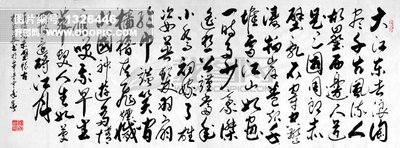 大江东去浪淘
尽千古风流人
物故垒西边人道
是三国周郎赤
壁乱石穿空惊
涛拍岸卷起千
堆雪江山如画
一时多少豪杰
遥想公瑾当年
小乔初嫁了雄
姿英发羽扇
纶巾谈笑间
樯橹灰飞烟灭
故国神游多情
应笑我早生
华发人生如梦
一尊还酹江月
1326446